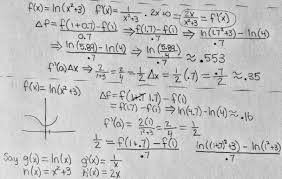 f(x) = ln(x²+3) f'(x) = 1/(x²+3) · 2x+0 = 2x/(x²+3) = f'(x)
Δf = f(1+0.7)-f(1)/0.7 ⇒ f(1.7)-f(1)/.7 ⇒ ln(1.7²+3)-ln(4)/.7
⇒ ln(5.89)-ln(4)/.7 ⇒ ln(5.89/4)/.7 ≈ .553
f'(a)Δx = 2/(2+3) = 2/4 = 1/2 Δx = 1/2 (.7) = .7/2 ≈ .35
f(x) = ln(x²+3)
Δf = f(1+.7)-f(1)
= f(1.7)-f(1) ⇒ ln(4.7)-ln(4) ≈ .16
f'(a) = 2(1)/(1²+3) = 2/4 = 1/2
1/2 = f(1+.7)-f(1)/.7 ln((1+.7)²+3)-ln(1²+3)/.7
Say g(x) = ln(x) g'(x) = 1/x
h(x) = x²+3 h'(x) = 2x